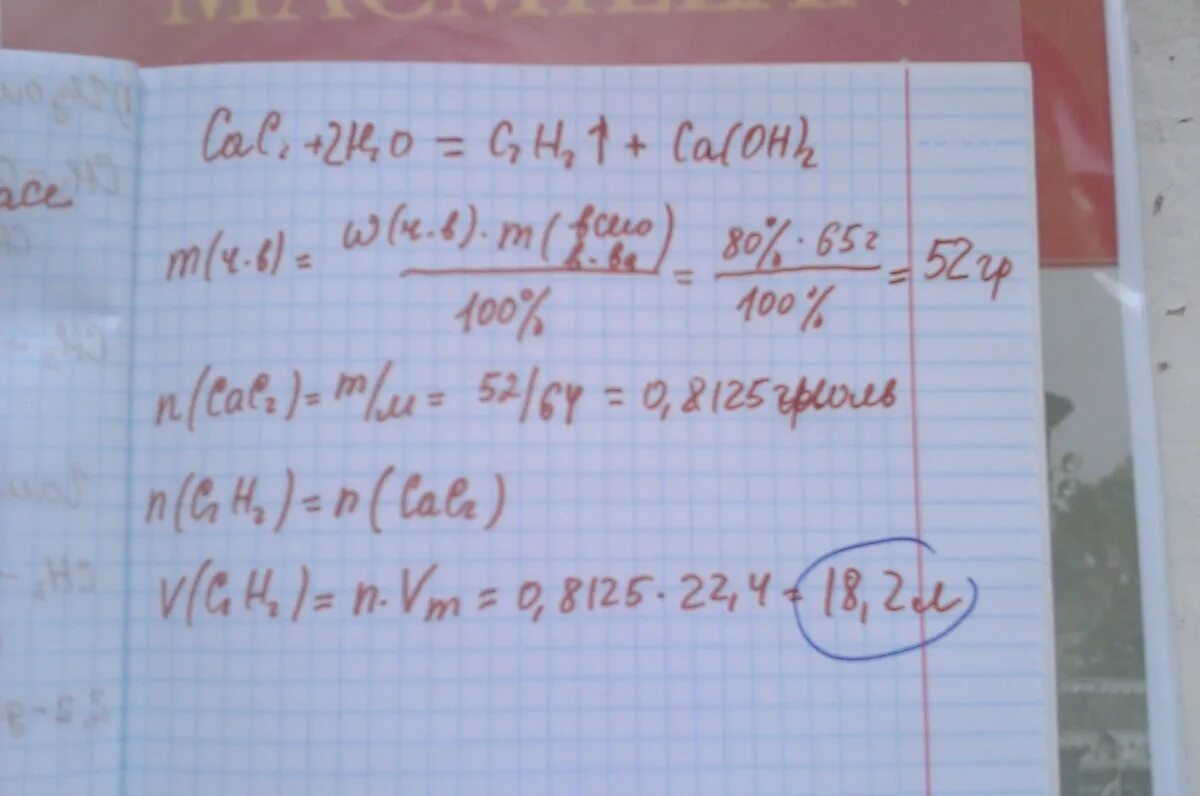 MACMILLAN
CaC₂ + 2H₂O = C₂H₂↑ + Ca(OH)₂
m(ч.в) = w(ч.в) · m(всего в-ва) / 100% = 80% · 65г / 100% = 52гр
n(CaC₂) = m/M = 52/64 = 0,8125 грмоль
n(C₂H₂) = n(CaC₂)
V(C₂H₂) = n · Vm = 0,8125 · 22,4 = 18,2л